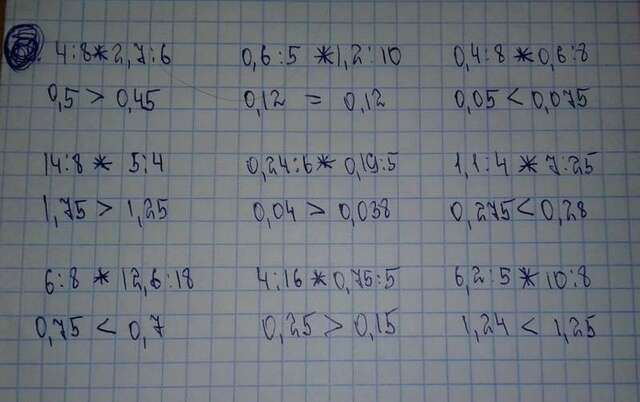 4:8 * 2,7:6 0,6:5 * 1,2:10 0,4:8 * 0,6:8
0,5 > 0,45 0,12 = 0,12 0,05 < 0,075
14:8 * 5:4 0,24:6 * 0,19:5 1,1:4 * 7:25
1,75 > 1,25 0,04 > 0,038 0,275 < 0,28
6:8 * 12,6:18 4:16 * 0,75:5 6,2:5 * 10:8
0,75 < 0,7 0,25 > 0,15 1,24 < 1,25